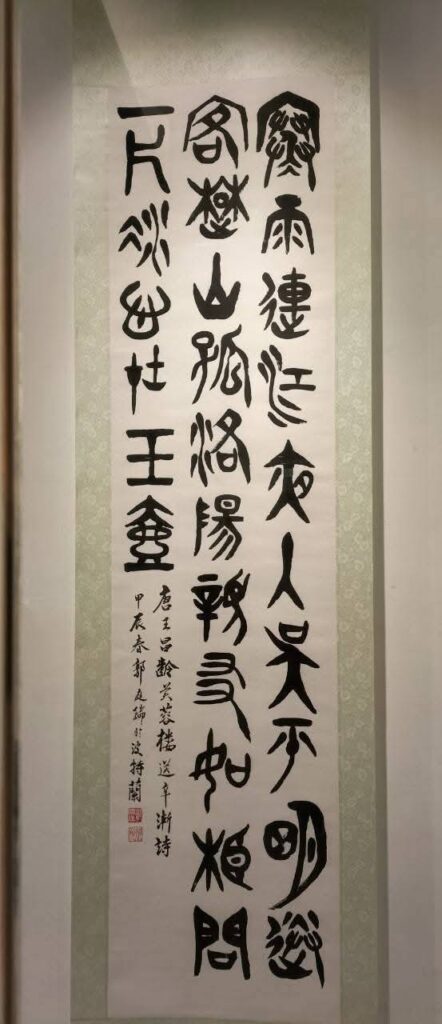 寒雨連江夜入吳平明送
客楚山孤洛陽親友如相問
一片冰心在玉壺
唐王昌齡芙蓉樓送辛漸詩
甲辰春郭瑞於波特蘭